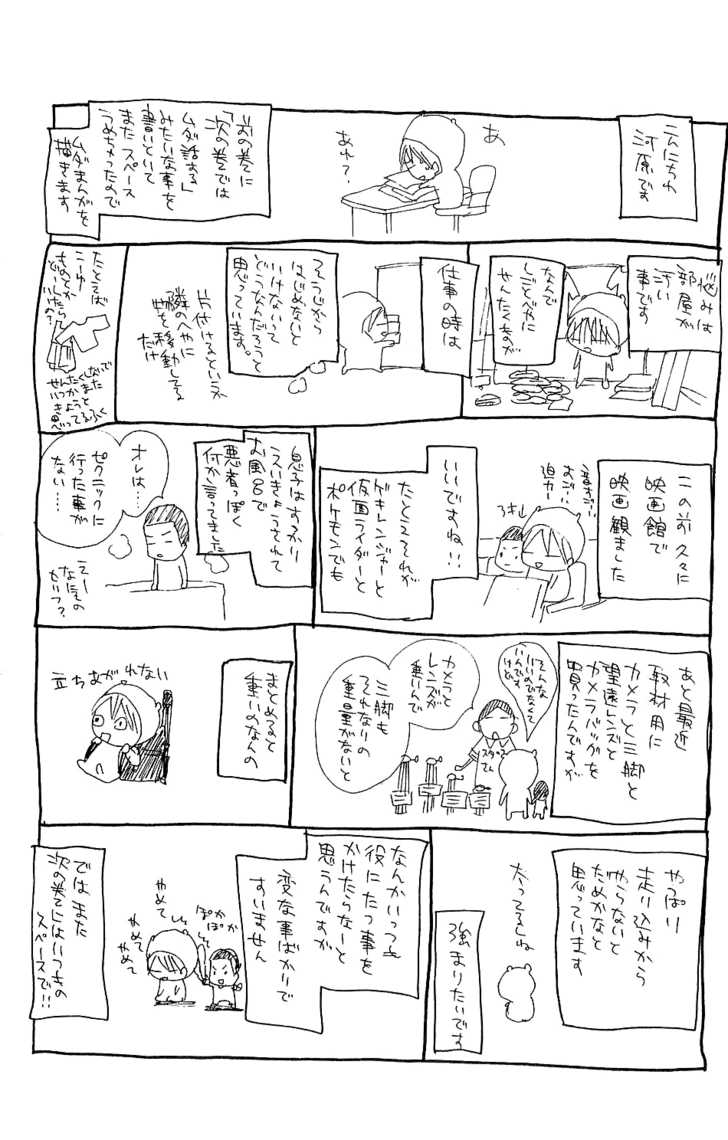 こんにちわ
河原です
あ
あれ？
前の巻に
「次の巻では
ムダ話する」
みたいな事を
書いといて
またスペース
うめちゃったので
ムダまんがを
描きます
悩みは
部屋が
汚い
事です
なんで
しごとべやに
せんたくものが
仕事の時は
そうじから
はじめないと
いけないって
どうなんだろうって
思っています。
片付けるというか
隣のへやに
物を移動してる
だけ
たとえば
こーゆー
ものとか
どーしたら
いいの？
せんたくしないで
いつかまた
きようと
思ってるふく
この前久々に
映画館で
映画観ました
音すご…
おご…
迫力…
いいですね!!
たとえそれが
ゲキレンジャーと
仮面ライダーと
ポケモンでも
息子はすっかり
えいきょうされて
お風呂で
悪者っぽく
何か言ってました
オレは…
ピクニックに
行った事が
ない…
えー
なにその
せいぶ？
あと最近
取材用に
カメラと三脚と
望遠レンズと
カメラバッグを
買ったんですが
そんな
いいのでなくて
いいんです
けど
スタッフ
さん
カメラと
レンズが
重いんで
三脚も
それなりの
重量がないと
まとめると
重いのなんの
立ちあがれない
やっぱり
走り込みから
やらないと
だめかなと
思っています
太ってるしね
強まりたいです
なんかいっつも
役にたつ事を
かけたらなーと
思うんですが
変な事ばかりで
すいません
ぽかぽか
ぽか
やめて
やめて
やめて
ではまた
次の巻にはいつきの
スペースで!!